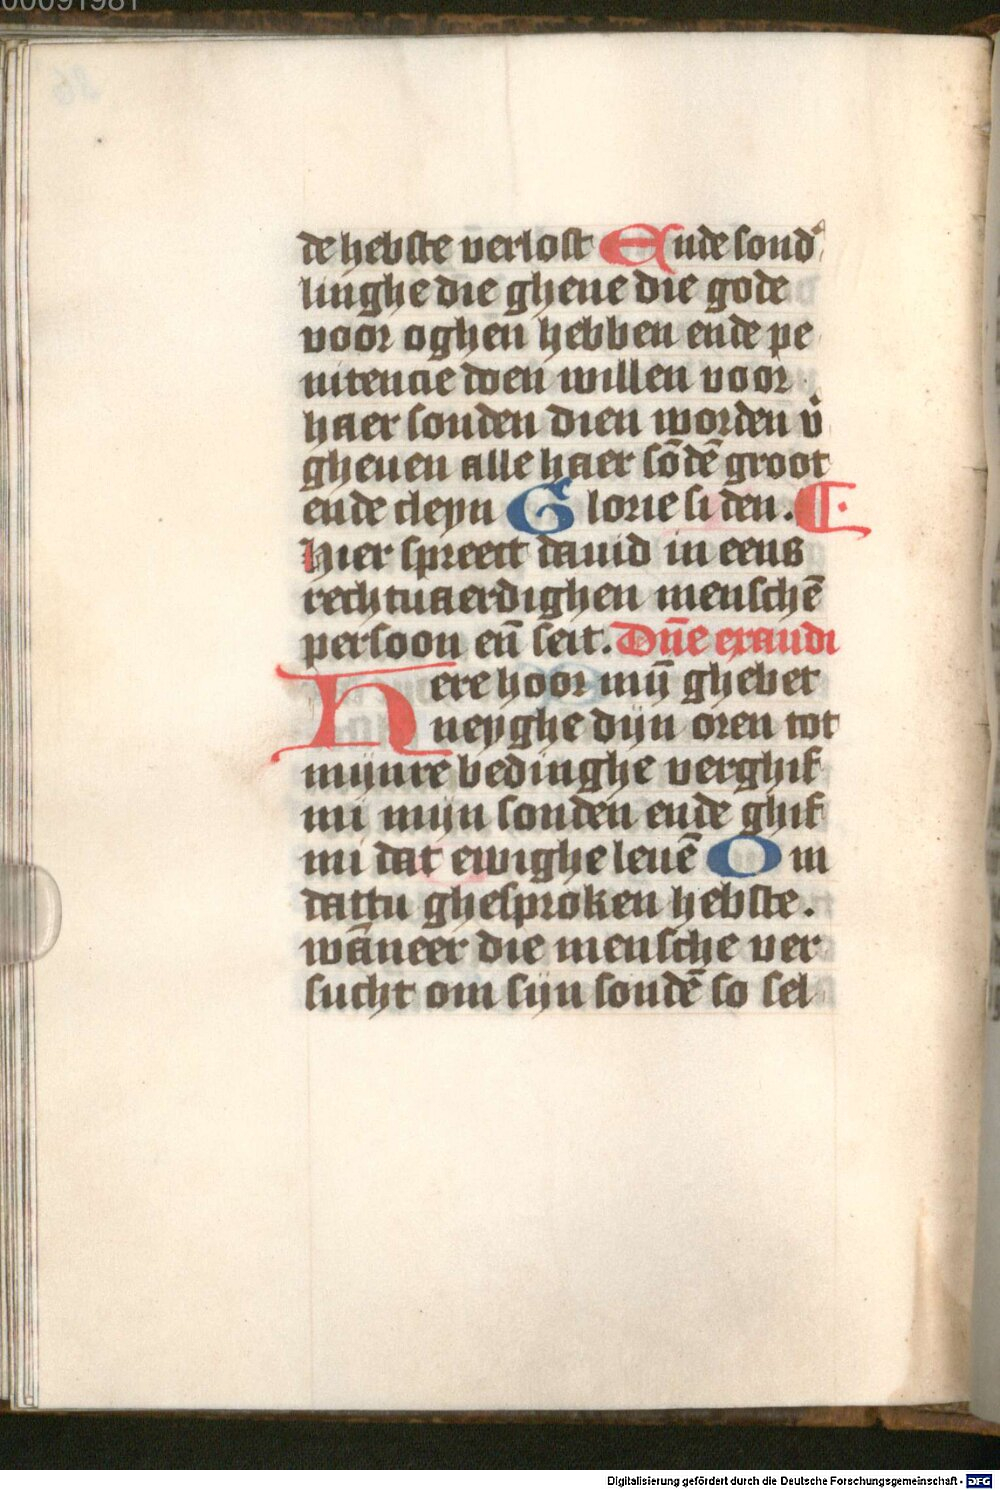 00091981
de hebste verlost Ende sond'
linghe die ghene die gode
voor oghen hebben ende pe
nitencie doen willen voor
haer sonden dien worden v̾
gheuen alle haer sōdē groot
ende cleyn Glorie si den. C.
Hier spreect dauid in eens
rechtuaerdighen menschē
persoon en̄ seit. Dn̄e exaudi
Here hoor mijn̄ ghebet
neyghe dijn oren tot
mijnre bedinghe verghif
mi mijn sonden ende ghif
mi dat ewighe leuē Om
dattu ghesproken hebste.
wāneer die mensche ver
sucht om sijn sondē so sel
Digitalisierung gefördert durch die Deutsche Forschungsgemeinschaft - DFG